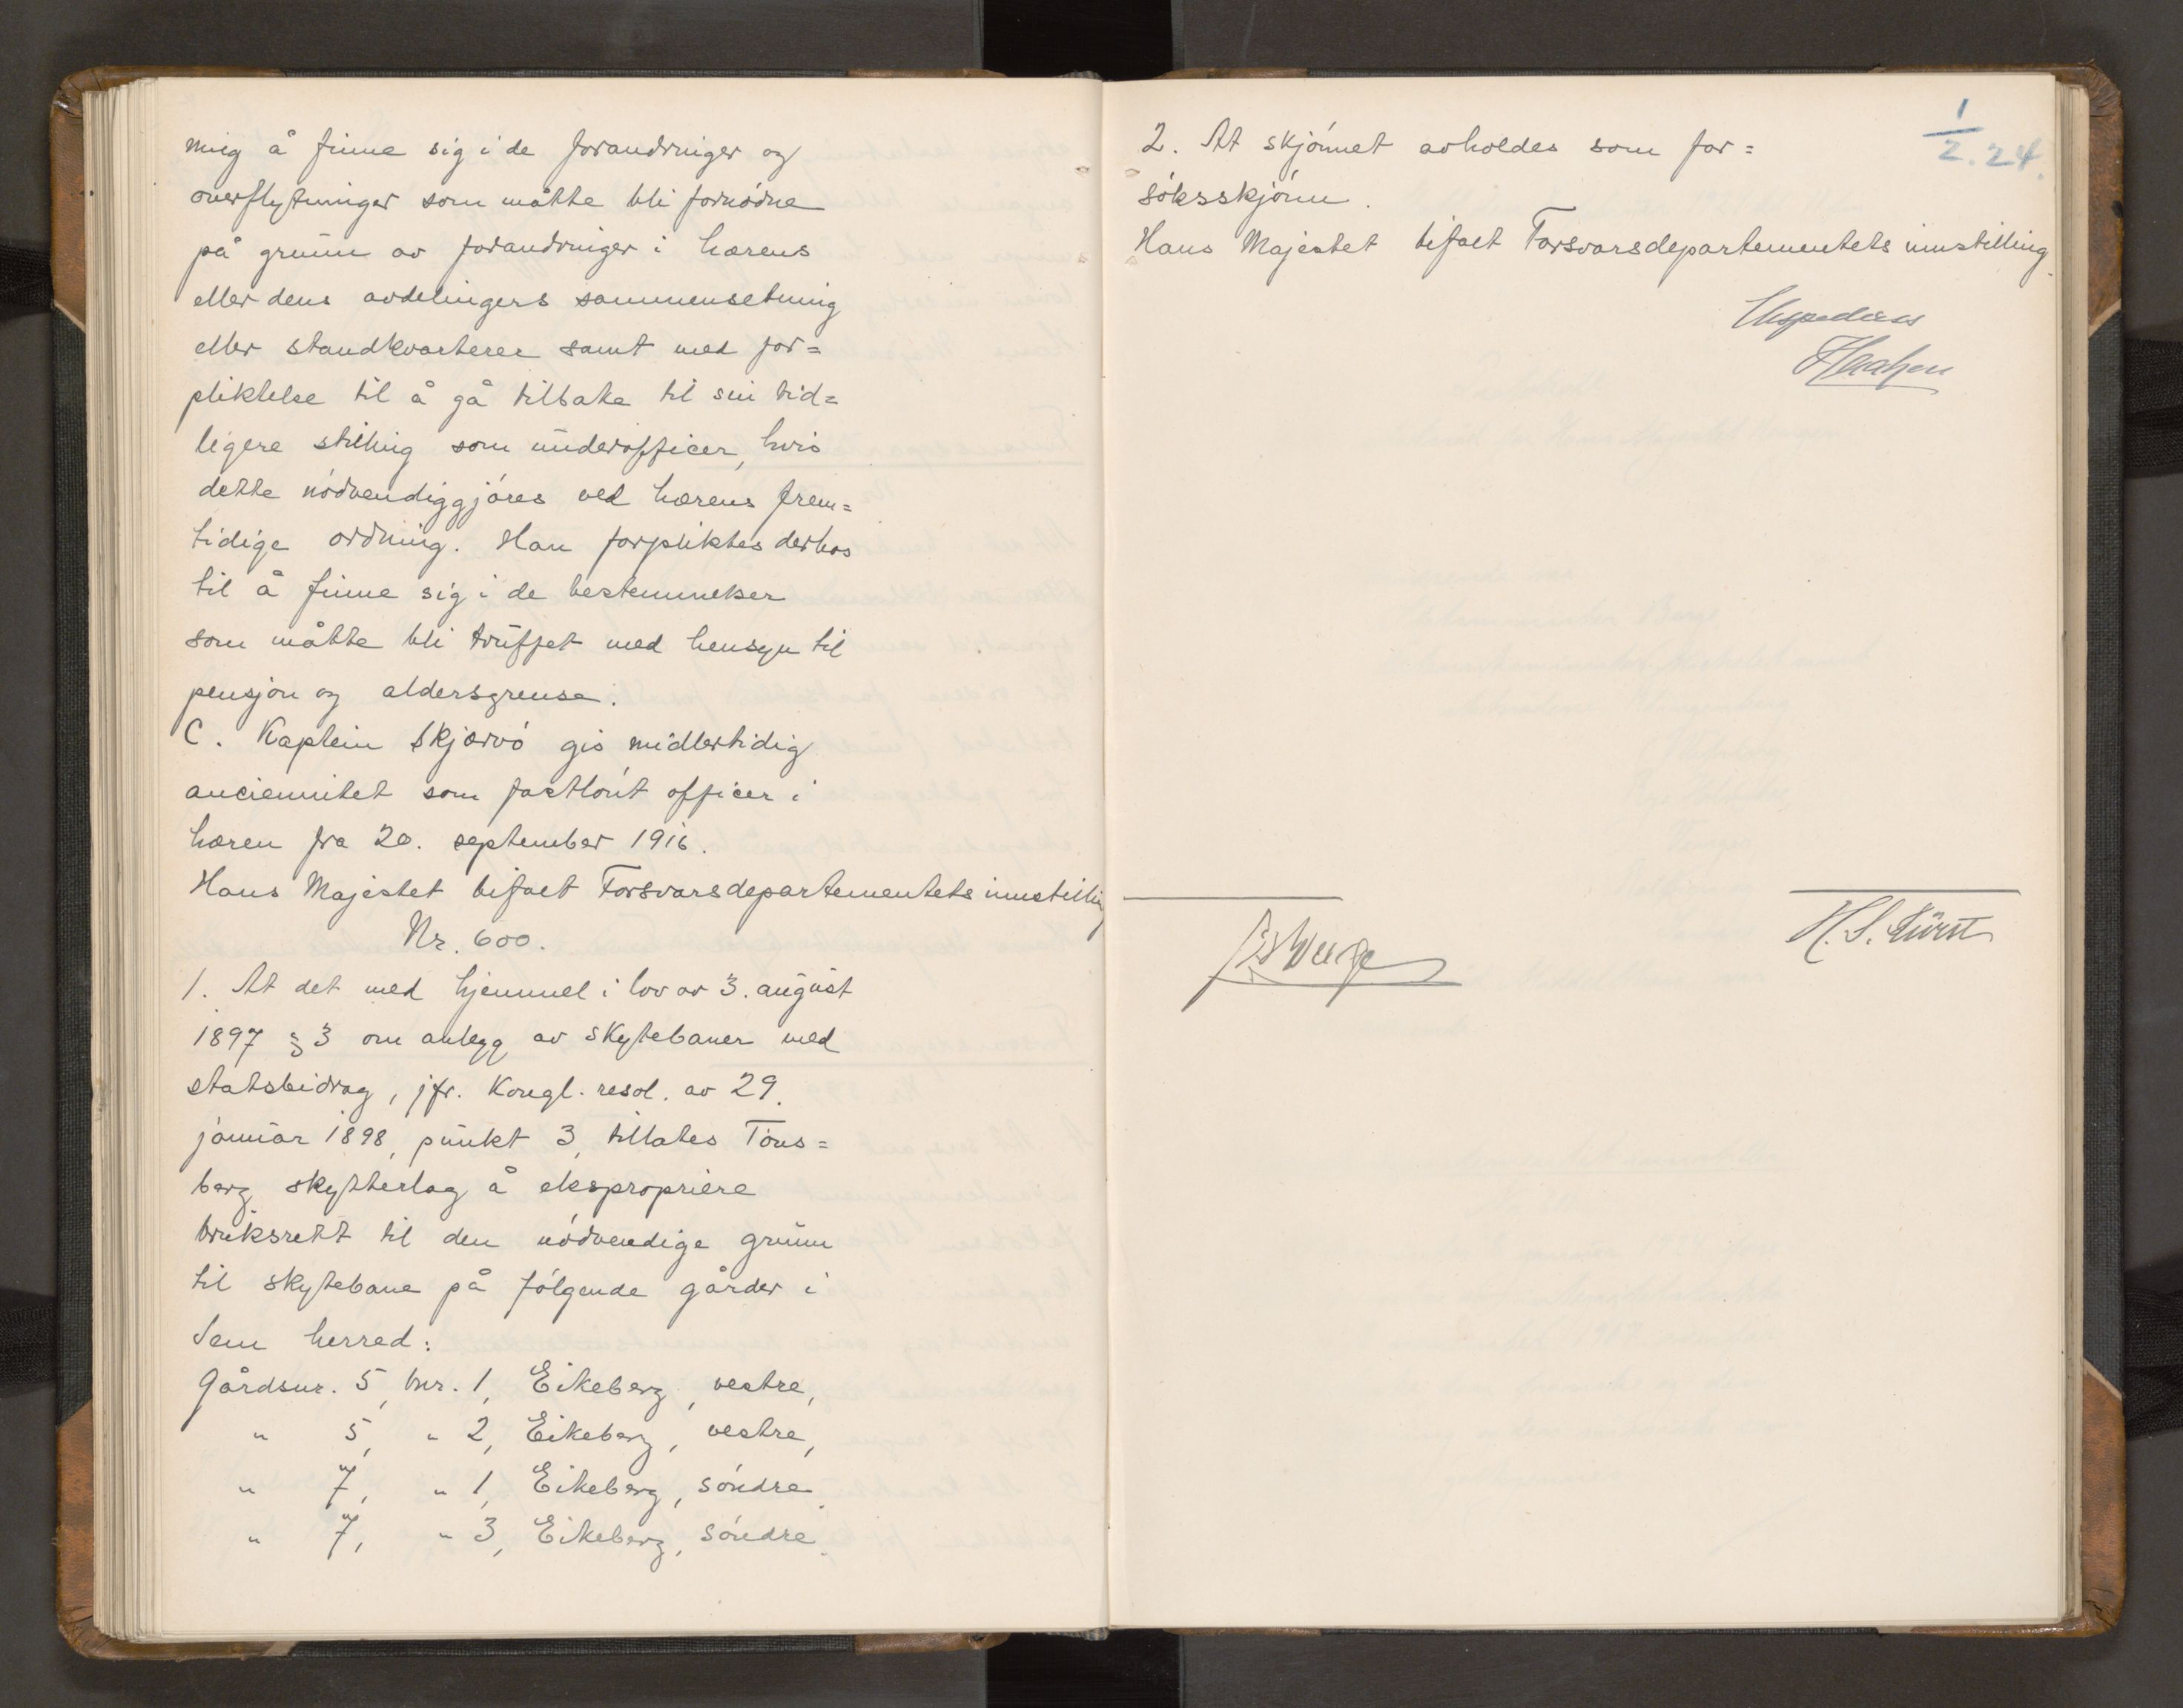 ning å finne sig i de forandringer og
overflytninger som måtte bli fornødne
på grunn av forandringer i hærens
eller dens avdelingers sammensetning
eller standkvarterer samt med for=
pliktelse til å gå tilbake til sin tid=
ligere stilling som underofficer, hvis
dette nødvendiggjøres ved hærens frem=
tidige ordning. Han forpliktes derhos
til å finne sig i de bestemmelser
som måtte bli truffet med hensyn til
pensjon og aldersgrense.
C. Kaptein Skjærvø gis midlertidig
anciennitet som fastlønt officer i
hæren fra 20. september 1916.
Hans Majestet bifalt Forsvarsdepartementets innstilling
Nr. 600.
1. At det med hjemmel i lov av 3. august
1897 § 3 om anlegg av skytebaner med
statsbidrag, jfr. Kongl. resol. av 29.
januar 1898, punkt 3, tillates Tøns=
berg skytterlag å ekspropriere
bruksrett til den nødvendige grunn
til skytebane på følgende gårder i
Sem herred:
Gårdsnr. 5, bnr. 1, Eikeberg, vestre,
" 5, " 2, Eikeberg, vestre,
" 7, " 1, Eikeberg, søndre.
" 7, " 3, Eikeberg, søndre.
1/2.24.
2. At skjønnet avholdes som for=
søksskjønn.
Hans Majestet bifalt Forsvarsdepartementets innstilling.
H. S. Fürst